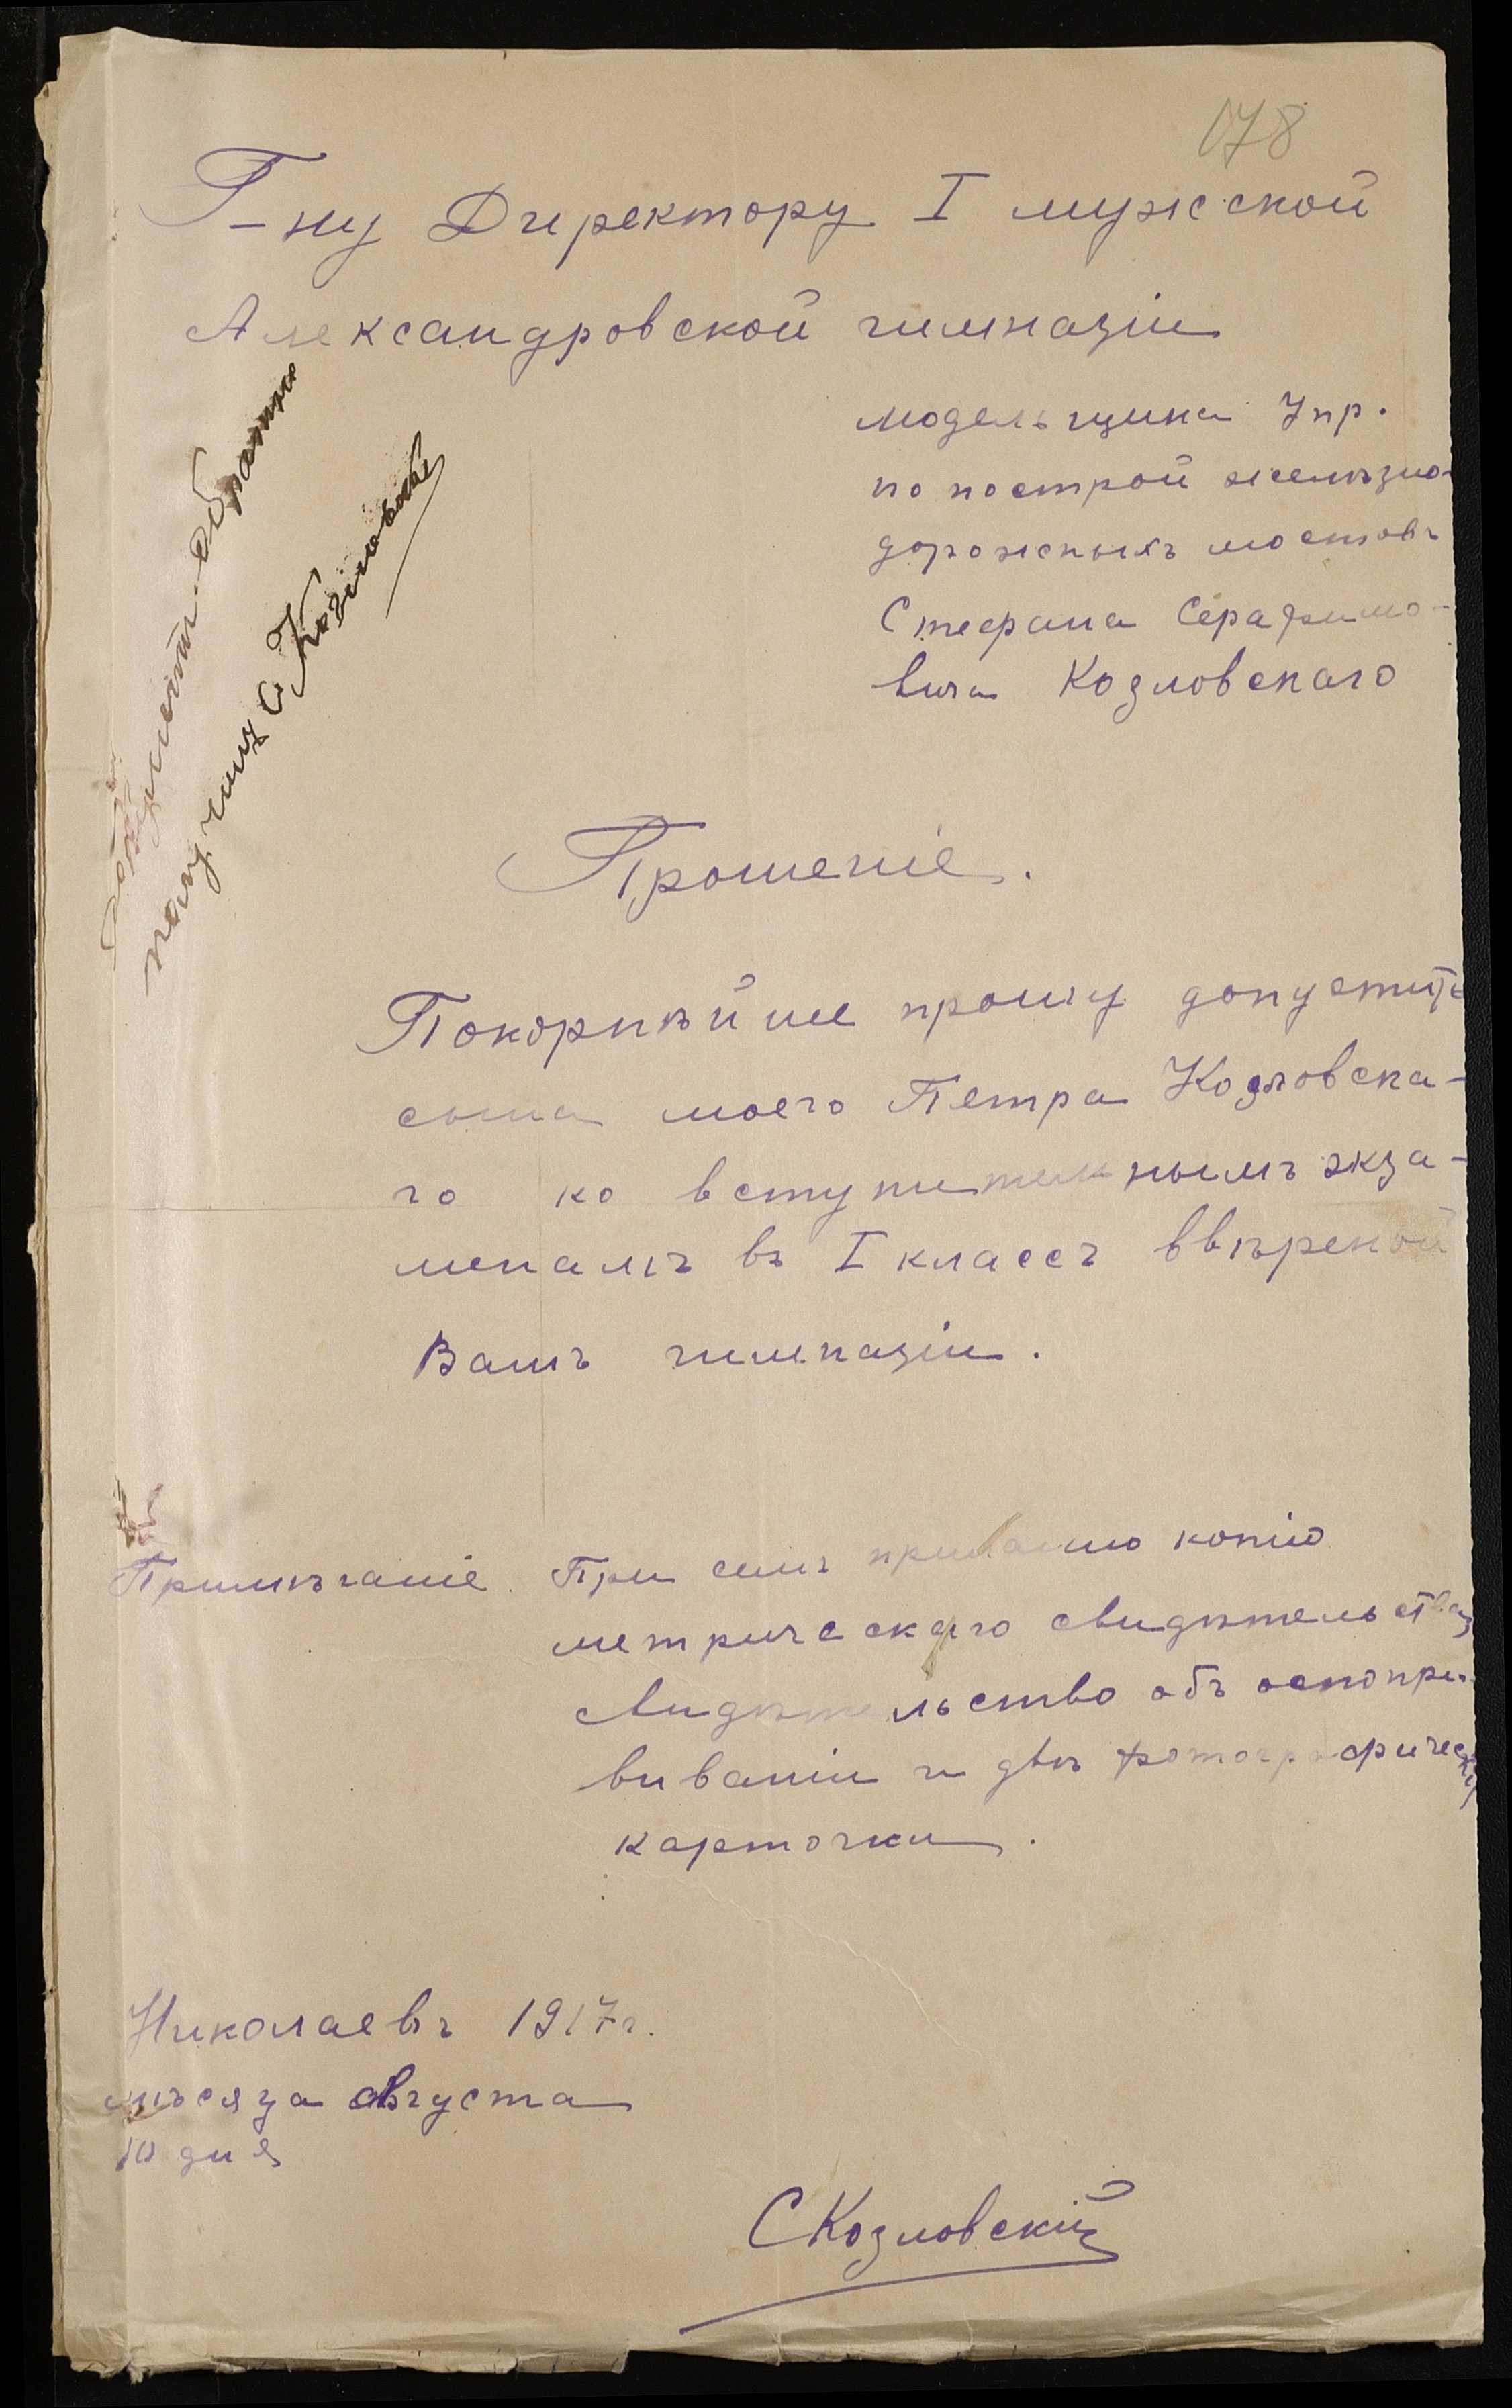 178
Г-ну Директору I мужской
Александровской гимназіи
модельщика Упр.
по построй желѣзно-
дорожныхъ мостовъ
Стефана Серафимо-
вича Козловскаго
документы обратно
получилъ С Козловскі
Прошеніе.
Покорнѣйше прошу допустить
сына моего Петра Козловска-
го ко вступительнымъ экза-
менамъ въ I классъ ввѣреной
Вамъ гимназіи.
Примѣчаніе При семъ прилагаю копію
метрическаго свидѣтельства,
свидѣтельство объ оспопри-
виваніи и двѣ фотографическ
карточки.
Николаевъ 1917 г.
мѣсяца Августа
10 дня
СКозловскій